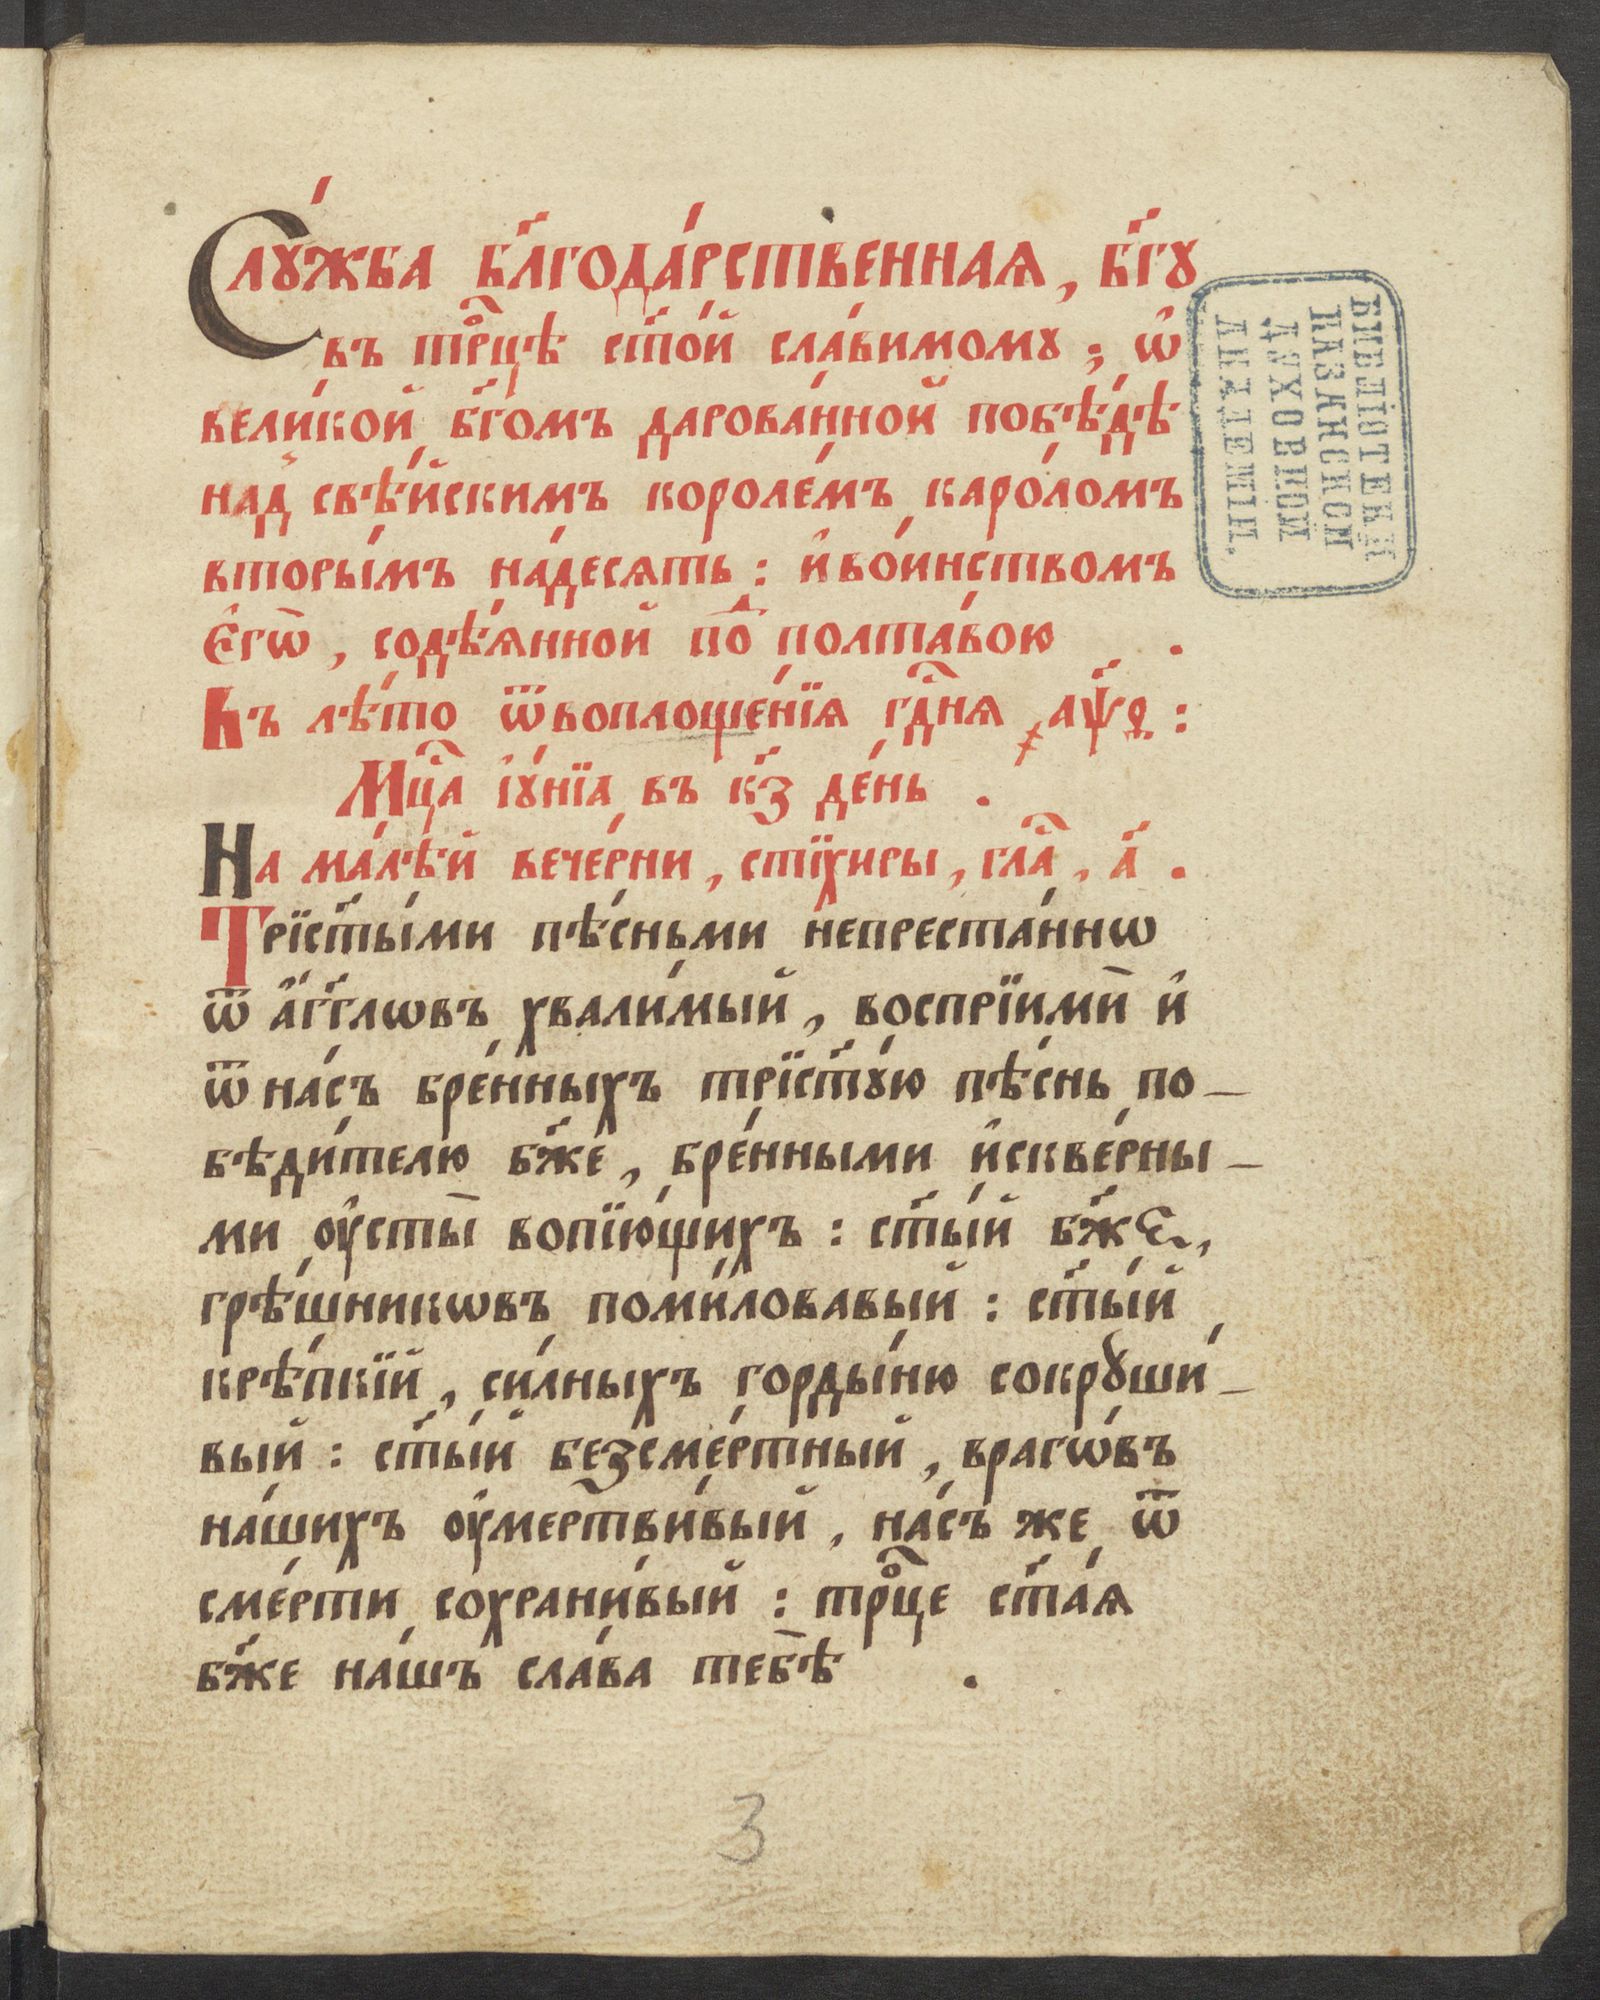 Слꙋ́жба бл҃года́рственная, бг҃ꙋ
въ трⷪ҇цѣ ст҃о́й сла́вимомꙋ, ѡ҆
вели́кой бг҃омъ дарова́нной побѣ́дѣ
над свѣ́йскимъ короле́мъ каро́ломъ
вторы́мъ на́десять: и҆ во́инствомъ
є҆гѡ̀, содѣ́янной поⷣ полта́вою .
Въ лѣ́то ѿ воплоще́нїя гдⷭ҇ня ҂аѱѳ:
Мцⷭ҇а і҆ꙋ́нїа въ к҃з де́нь .
На ма́лѣй вече́рни, стїхиры, глаⷭ҇, а҃ .
Трїст҃ы́ми пѣ́сньми непреста́ннѡ
ѿ а҆́гг҃лѡвъ хвали́мый, воспрїимѝ и҆
ѿ на́съ бре́нныхъ трїст҃ꙋ́ю пѣ́снь по-
бѣди́телю бж҃е, бре́нными и҆ скве́рны-
ми ѹ҆сты̀ вопїю́щихъ: ст҃ы́й бж҃е,
грѣ́шникѡвъ поми́ловавый: ст҃ы́й
крѣ́пкїй, си́лныхъ горды́ню сокрꙋши́-
вый: ст҃ы́й безсме́ртный, врагѡ́въ
на́шихъ ѹ҆мертви́вый, на́съ же ѿ
сме́рти сохрани́вый: трⷪ҇це ст҃а́я
бж҃е на́шъ сла́ва тебѣ̀ .
3
БИБЛІОТЕКИ
КАЗАНСКОЙ
ДУХОВНОЙ
АКАДЕМІИ.